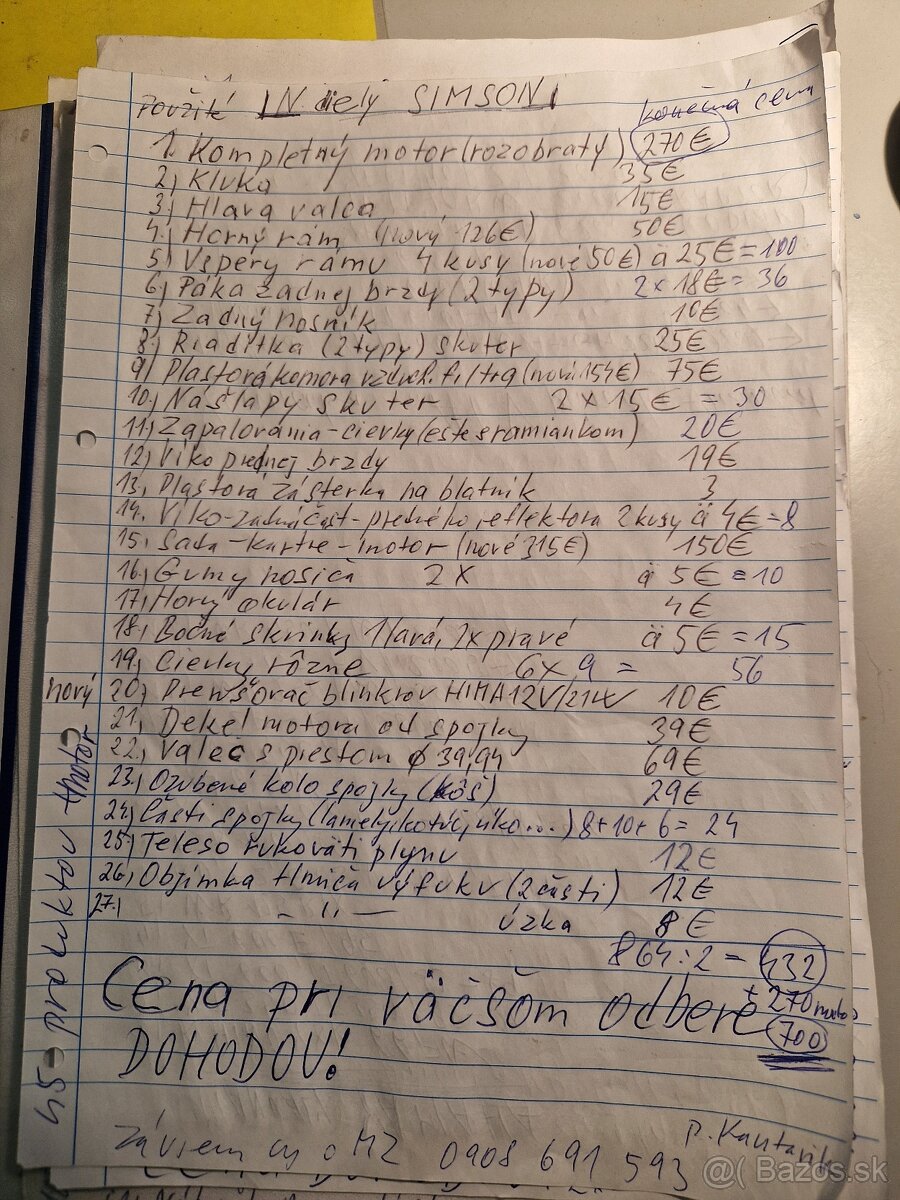 Použité IN diely SIMSON
konečná cena
1. Kompletný motor (rozobratý) 270€
2) Kľuka 35€
3) Hlava valca 15€
4.) Horný rám (nový 126€) 50€
5) Vspery rámu 4 kusy (nové 50€) á 25€ = 100
6) Páka zadnej brzdy (2 typy) 2 x 18€ = 36
7) Zadný nosník 10€
8) Riadítka (2 typy) skuter 25€
9) Plastová komora vzduch. filtra (nová 154€) 75€
10.) Nášlapy skuter 2 x 15€ = 30
11.) Zapaľovania - cievky (ešte s ramiankom) 20€
12) Viko prednej brzdy 19€
13, Plastová zásterka na blatník 3
14. Viko-zadná časť-predného reflektora 2 kusy á 4€ = 8
15. Sada - kartre - motor (nové 315€) 150€
16.) Gumy nosiča 2 x á 5€ = 10
17.) Horný okulár 4€
18.) Bočné skrinky 1 ľavá, 2x pravé á 5€ = 15
19.) Cievky rôzne 6 x 9 = 56
nový 20) Prerušovač blinkrov HIMA 12V/21W 10€
21. Dekel motora od spojky 39€
22.) Valec s piestom ø 39,94 69€
23.) Ozubené kolo spojky (kôš) 29€
24.) Časti spojky (lamely, kotúč, viko...) 8+10+6 = 24
25.) Teleso rukoväti plynu 12€
26.) Objímka tlmiča výfuku (2 časti) 12€
27.) - 11 - úzka 8€
864 : 2 = 432
+ 270 motor
700
Cena pri väčšom odbere
DOHODOU!
45 produktov + motor
0908 691 593
@( Bazos.sk